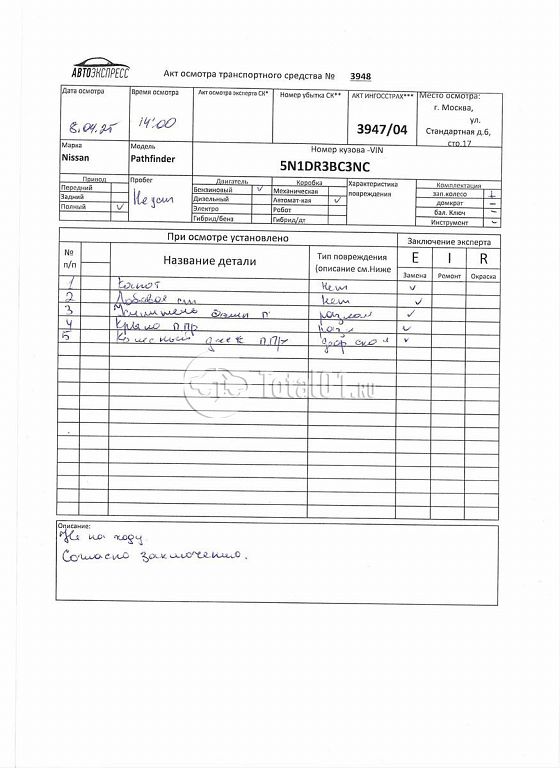 АВТОЭКСПРЕСС
Акт осмотра транспортного средства № 3948
Дата осмотра
8.04.25
Время осмотра
14:00
Акт осмотра эксперта СК*
Номер убытка СК**
АКТ ИНГОССТРАХ***
3947/04
Место осмотра:
г. Москва,
ул.
Стандартная д.6,
стр.17
Марка
Nissan
Модель
Pathfinder
Номер кузова -VIN
5N1DR3BC3NC
Привод
Передний
Задний
Полный ✓
Пробег
Двигатель
Бензиновый ✓
Дизельный
Электро
Гибрид/бенз
Коробка
Механическая
Автомат-кая ✓
Робот
Гибрид/дт
Характеристика
повреждения
Комплектация
зап.колесо +
домкрат –
бал. Ключ –
Инструмент –
При осмотре установлено
Заключение эксперта
№
п/п
Название детали
Тип повреждения
(описание см.Ниже
E I R
Замена Ремонт Окраска
1 Капот нет ✓
2 Лобовое ст. нет ✓
3 П разлом ✓
4 Крыло ППр ✓
5 Колесный диск П.Пр ✓
Total01.RU
Описание:
Не на ходу.
Согласно заключению.